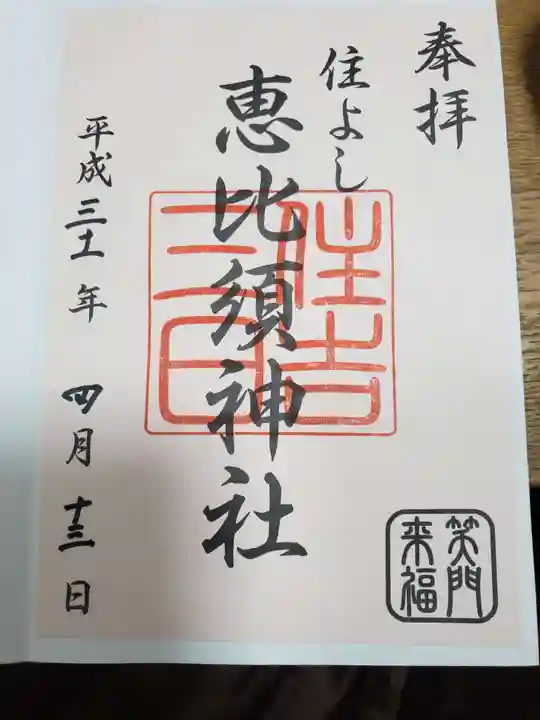 奉拝
住よし
恵比須神社
住吉
三白
平成三十一年 四月 十三日
笑門
来福